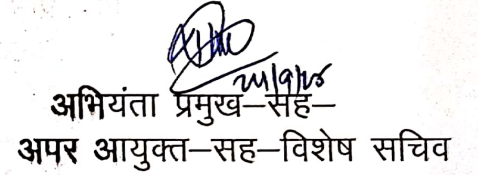 अभियंता प्रमुख–सह–
अपर आयुक्त–सह–विशेष सचिव